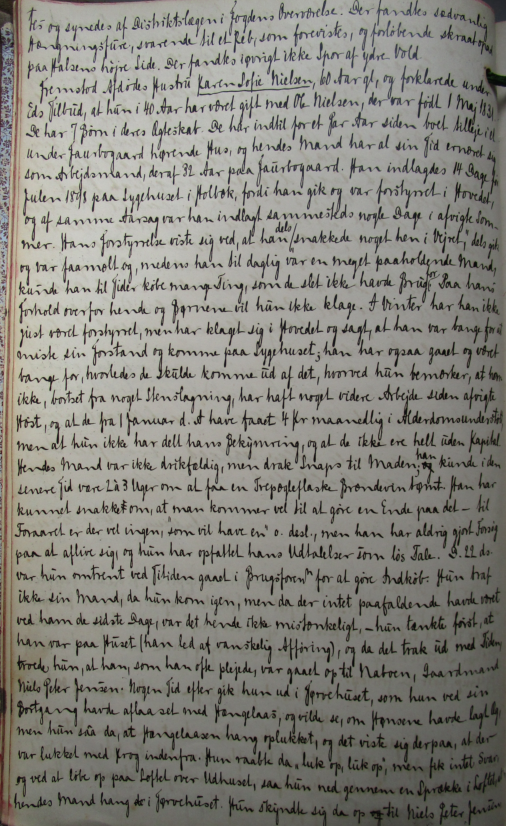 tes og synedes af Distriktslægen i Fogdens Overværelse. Der fandtes sædvanlig
Hængningsfure, svarende til et Reb, som forevistes, og forløbende skraat opad
paa Halsens højre Side. Der fandtes iøvrigt ikke Spor af ydre Vold.
Fremstod Afdødes Hustru Karen Sofie Nielsen, 60 Aar gl, og forklarede under
Eds Tilbud, at hun i 40 Aar har været gift med Ole Nielsen, der var født 1 Maj 1831.
De har 7 Børn i deres Ægteskab. De har indtil for et Par Aar siden boet tilleje i et
under Faurbogaard hørende Hus, og hendes Mand har al sin Tid ernæret sig
som Arbejdsmand, deraf 32 Aar paa Faurbogaard. Han indlagdes 14 Dage før
Julen 1898 paa Sygehuset i Holbæk, fordi han gik og var forstyrret i Hovedet,
og af samme Aarsag var han indlagt sammesteds nogle Dage i afvigte Som-
mer. Hans Forstyrrelse viste sig ved, at han dels "snakkede noget hen i Vejret", dels gik
og var faamælt og, medens han til daglig var en meget paaholdende Mand,
kunde han til Tider købe mange Ting, som de slet ikke havde Brug for. Paa hans
Forhold overfor hende og Børnene vil hun ikke klage. I Vinter har han ikke
just været forstyrret, men har klaget sig i Hovedet og sagt, at han var bange for at
miste sin Forstand og komme paa Sygehuset; han har ogsaa gaaet og været
bange for, hvorledes de skulde komme ud af det, hvorved hun bemærker, at han
ikke, bortset fra noget Stenslagning, har haft noget videre Arbejde siden afvigte
Høst, og at de fra 1 Januar d. A have faaet 4 Kr maanedlig i Alderdomsunderstøt
men at hun ikke har delt hans Bekymring, og at de ikke ere helt uden Kapital.
Hendes Mand var ikke drikfældig, men drak Snaps til Maden; han kunde i den
senere Tid være 2 à 3 Uger om at faa en Trepægleflaske Brændevin tømt. Han har
kunnet snakke om, at man kommer vel til at göre en Ende paa det – til
Foraaret er der vel ingen, "som vil have en" o. desl., men han har aldrig gjort Forsøg
paa at aflive sig, og hun har opfattet hans Udtalelser som løs Tale. D. 22 ds.
var hun omtrent ved Titiden gaaet i Brugsforen^n for at göre Indkøb. Hun traf
ikke sin Mand, da hun kom igen, men da der intet paafaldende havde været
ved ham de sidste Dage, var det hende ikke mistænkeligt, – hun tænkte først, at
han var paa Huset (han led af vanskelig Afføring), og da det trak ud med Tiden,
troede hun, at han, som han ofte plejede, var gaaet op til Naboen, Gaardmand
Niels Peter Jensen. Nogen Tid efter gik hun ud i Tørvehuset, som hun ved sin
Bortgang havde aflaaset med Hængelaas, og vilde se, om Hønsene havde lagt Æg,
men hun saa da, at Hængelaasen hang oplukket, og det viste sig derpaa, at der
var lukket med Krog indenfra. Hun raabte da "luk op, luk op", men fik intet Svar,
og ved at løbe op paa Loftet over Udhuset, saa hun ned gennem en Sprække i Loftet, at
hendes Mand hang i Tørvehuset. Hun skyndte sig da op til Niels Peter Jensen